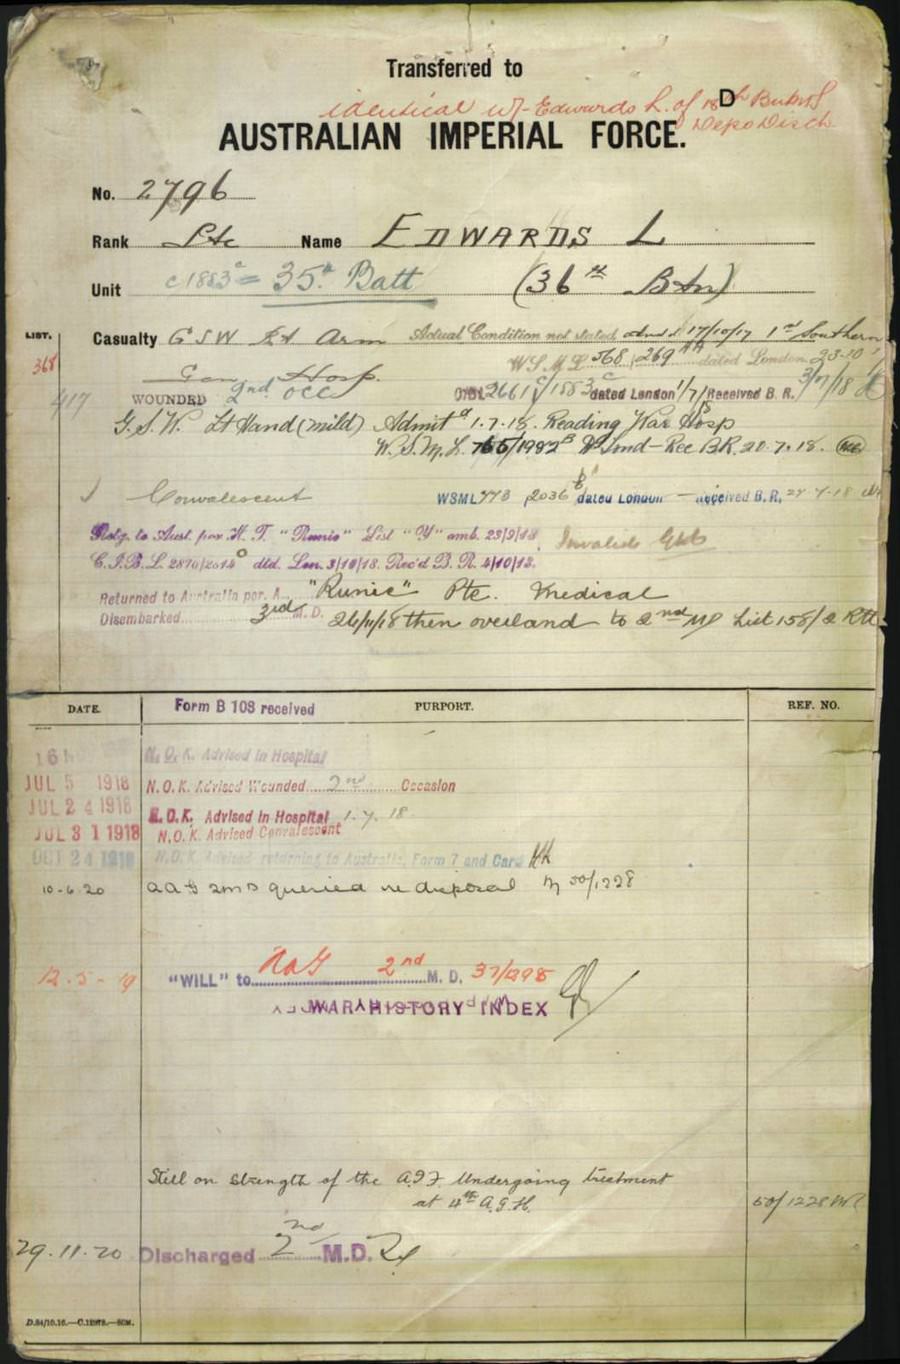 Transferred to
identical w/- Edwards L. of 18
D
Depo Disch
AUSTRALIAN IMPERIAL FORCE.
No. 2796
Rank Pte Name EDWARDS L
Unit c1883c = 35th Batt (36th Btn)
LIST.
Casualty GSW Arm Actual Condition not stated admd 17/10/17 1st Southern
368
W.S.M.L. 568/269 AA dated London 23-10
Gen Hosp.
417
WOUNDED 2nd occ 2661/1883c dated London 1/7/18 Received B. R. 3/7/18
G.S.W. Lt Hand (mild) Admitd 1.7.18. Reading War Hosp
W.S.M.L. 765/1982B Wound-Rec BR. 20.7.18.
Convalescent WSML 773 2036B dated London — Received B. R. 27 7-18
Retg. to Aust. per H. T. "Runic" List "Y" emb. 23/9/18. Invalids
C.I.B.L. 2870/2614 dtd. Lon. 3/10/18. Rec'd B. R. 4/10/18.
Returned to Australia per. A. "Runic" Pte. Medical
Disembarked 3rd M. D. 26/11/18 then overland to 2nd MD List 158/2 Rtd
DATE. Form B 103 received PURPORT. REF. NO.
N. O. K. Advised in Hospital
JUL 5 1918 N.O.K. Advised Wounded 2nd Occasion
JUL 24 1918 N.O.K. Advised in Hospital 1.7.18
JUL 31 1918 N.O.K. Advised Convalescent
OCT 24 1918 N.O.K. Advised returning to Australia, Form 7 and Card
10-6.20 AAG 2MD queried re disposal M 50/1228
12.5-19 "WILL" to AAG 2nd M. D. 37/1298
WAR HISTORY INDEX
Still on strength of the A.I.F. Undergoing treatment
at 4th A.G.H. 50/1228
29.11.20 Discharged 2nd M.D.
D.84/10.16.—C.12978.—50M.